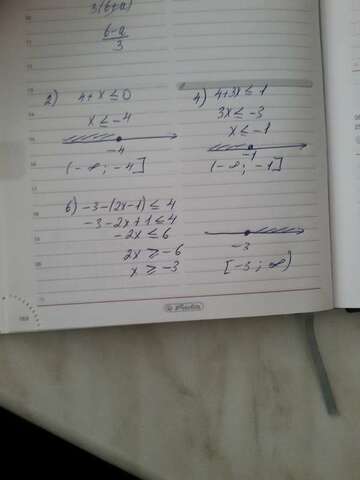 3(b+a)
b-a
3
2) 4+x ≤ 0
x ≤ -4
-4
(-∞ ; -4]
4) 4+3x ≤ 1
3x ≤ -3
x ≤ -1
-1
(-∞ ; -1]
6) -3-(2x-1) ≤ 4
-3-2x+1 ≤ 4
-2x ≤ 6
2x ≥ -6
x ≥ -3
-3
[-3 ; ∞)